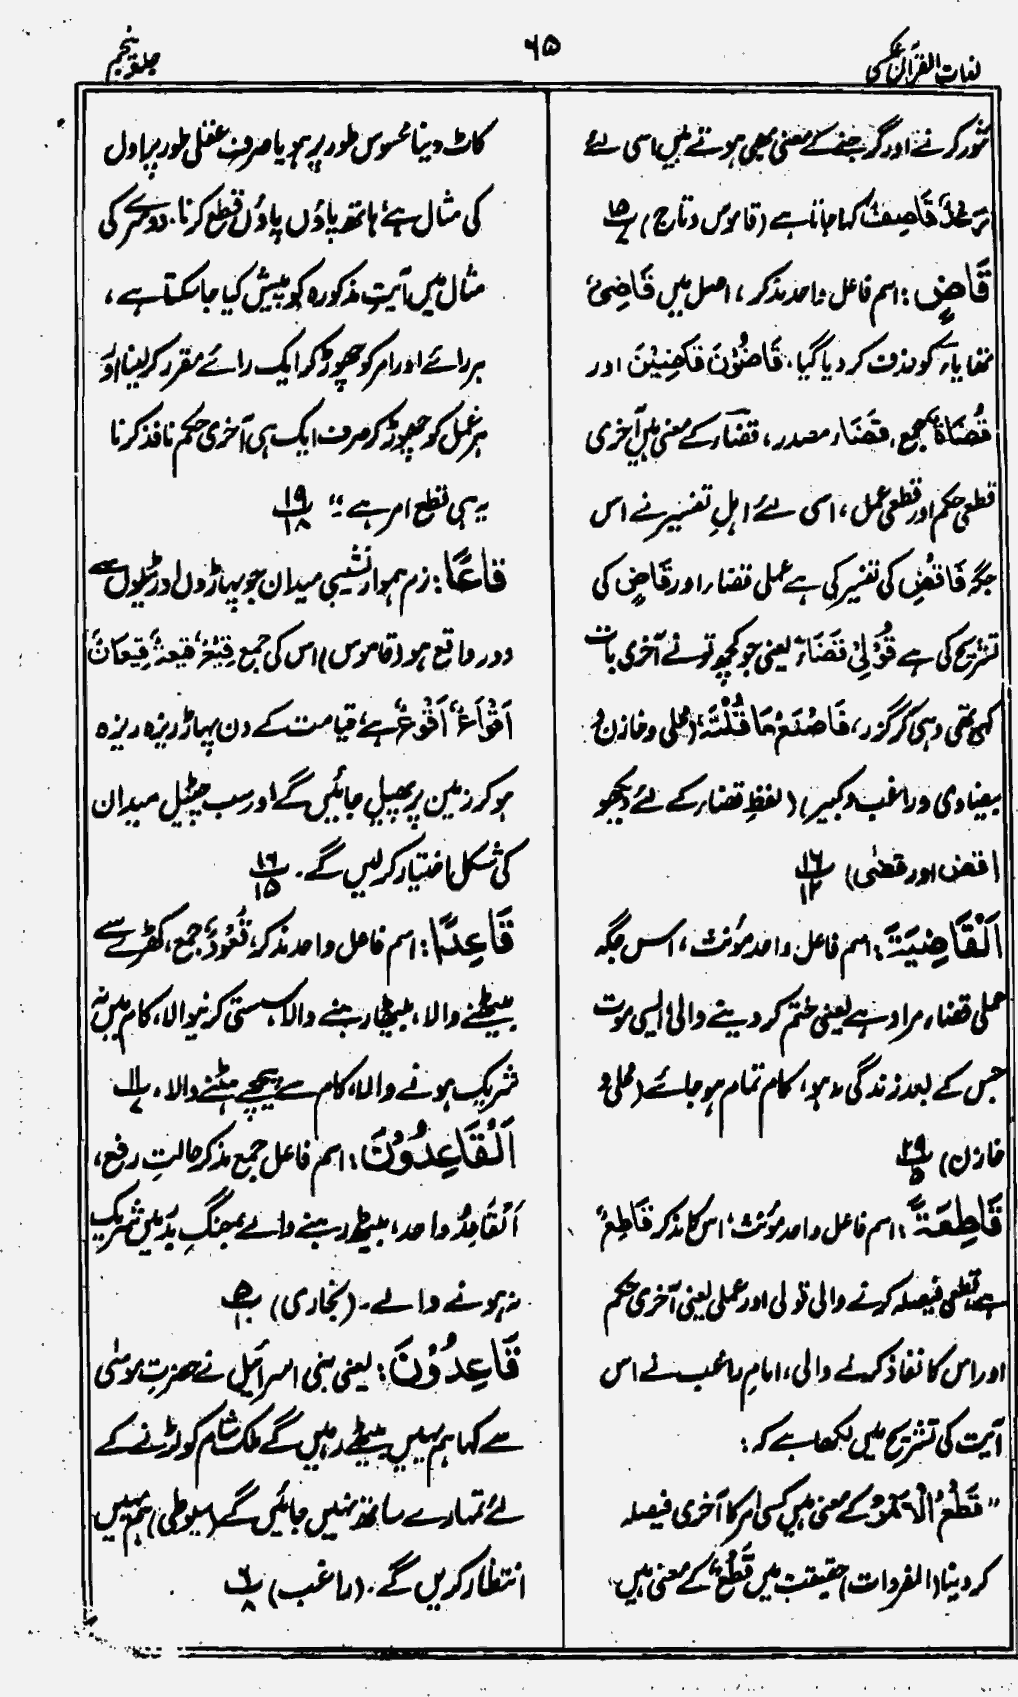 لغات القرآن عکسی
۶۵
جلد پنجم
شور کرنے اور گرجنے کے معنی بھی ہوتے ہیں اسی لئے
رَعْدٌ قَاصِفٌ کہا جاتا ہے (قاموس و تاج) ۱۵/۷
قَاضٍ: اسم فاعل واحد مذکر، اصل میں قَاضِیٌ
تھا یاء کو حذف کر دیا گیا، قَاضُوْنَ قَاضِیْنَ اور
قُضَاۃٌ جمع، قَضَاء مصدر، قضاء کے معنی ہیں آخری
قطعی حکم اور قطعی عمل، اسی لئے اہلِ تفسیر نے اس
جگہ فَاقْضِ کی تفسیر کی ہے عملی قضاء اور قَاضٍ کی
تشریح کی ہے قَوْلِیْ قَضَاءً یعنی جو کچھ تو نے آخری بات
کہی تھی وہی کر گزر، فَاصْنَعْ مَا قُلْتَہٗ (محلی و خازن و
بیضاوی و راغب و کبیر) (لفظِ قضاء کے لئے دیکھو
اقض اور قضٰی) ۱۶/۱۲
اَلْقَاضِیَۃَ: اسم فاعل واحد مؤنث، اس جگہ
عملی قضاء مراد ہے یعنی ختم کر دینے والی ایسی موت
جس کے بعد زندگی نہ ہو، کام تمام ہو جائے (محلی و
خازن) ۲۹/۵
قَاطِعَۃً: اسم فاعل واحد مؤنث، اس کا مذکر قَاطِعٌ
ہے، قطعی فیصلہ کرنے والی قولی اور عملی یعنی آخری حکم
اور اس کا نفاذ کرنے والی، امامِ راغب نے اس
آیت کی تشریح میں لکھا ہے کہ:
"قَطْعُ الْاَمْرِ کے معنی ہیں کسی امر کا آخری فیصلہ
کر دینا (المفردات) حقیقت میں قَطْعٌ کے معنی ہیں
کاٹ دینا محسوس طور پر ہو یا صرف عقلی طور پر، اول
کی مثال ہے ہاتھ پاؤں پاؤں قطع کرنا، دوسرے کی
مثال میں آیتِ مذکورہ کو پیش کیا جا سکتا ہے،
ہر رائے اور امر کو چھوڑ کر ایک رائے مقرر کر لینا اور
ہر عمل کو چھوڑ کر صرف ایک ہی آخری حکم نافذ کرنا
یہ ہی قطع امر ہے؛" ۱۹/۱۸
قَاعًا: نرم ہموار نشیبی میدان جو پہاڑوں اور ٹیلوں سے
دور واقع ہو (قاموس) اس کی جمع قِیْعٌ، قِیْعَۃٌ، قِیْعَانٌ،
اَقْوَاعٌ، اَقْوُعٌ ہے، قیامت کے دن پہاڑ ریزہ ریزہ
ہو کر زمین پر پھیل جائیں گے اور سب چٹیل میدان
کی شکل اختیار کر لیں گے۔ ۱۶/۱۵
قَاعِدًا: اسم فاعل واحد مذکر، قُعُوْدٌ جمع، کھڑے سے
بیٹھنے والا، بیٹھا رہنے والا، سستی کرنیوالا، کام میں نہ
شریک ہونے والا، کام سے پیچھے ہٹنے والا، ۱۱/۷
اَلْقَاعِدُوْنَ: اسم فاعل جمع مذکر حالتِ رفع،
اَلْقَاعِدُ واحد، بیٹھے رہنے والے، جنگِ بدر میں شریک
نہ ہونے والے۔ (بخاری) ۵/۱۰
قَاعِدُوْنَ: یعنی بنی اسرائیل نے حضرت موسٰی
سے کہا ہم یہیں بیٹھے رہیں گے ملک شام کو لڑنے کے
لئے تمہارے ساتھ نہیں جائیں گے (سیوطی) ہم یہیں
انتظار کریں گے۔ (راغب) ۶/۸